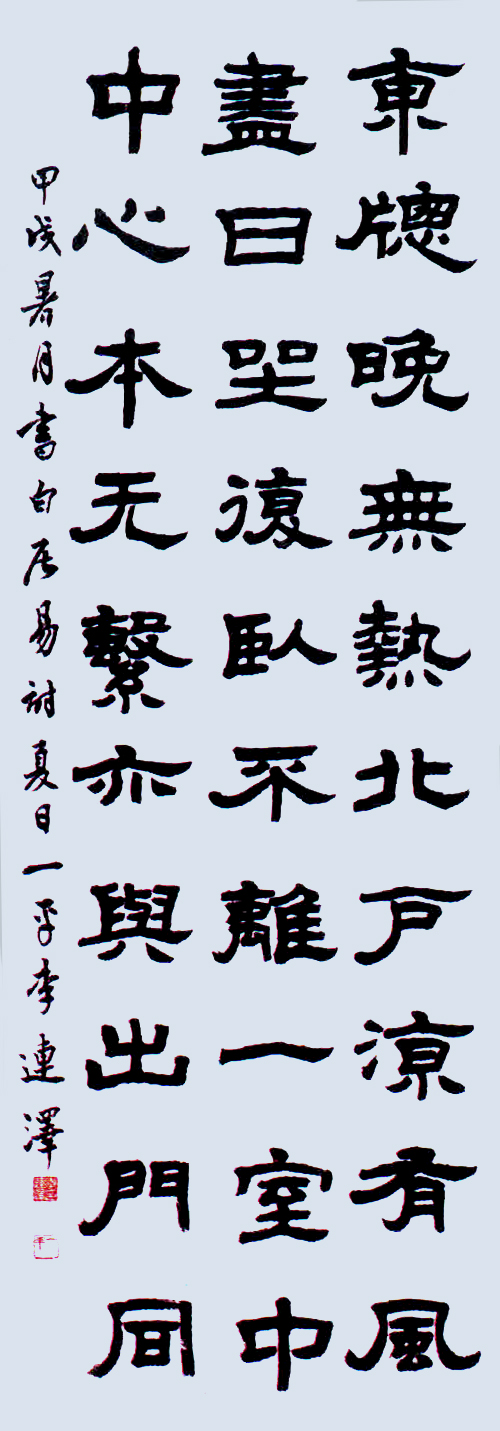 東牕晚無熱北戶涼有風
盡日坐復臥不離一室中
中心本无繫亦與出門同
甲戌暑月書白居易詩夏日一平李連澤